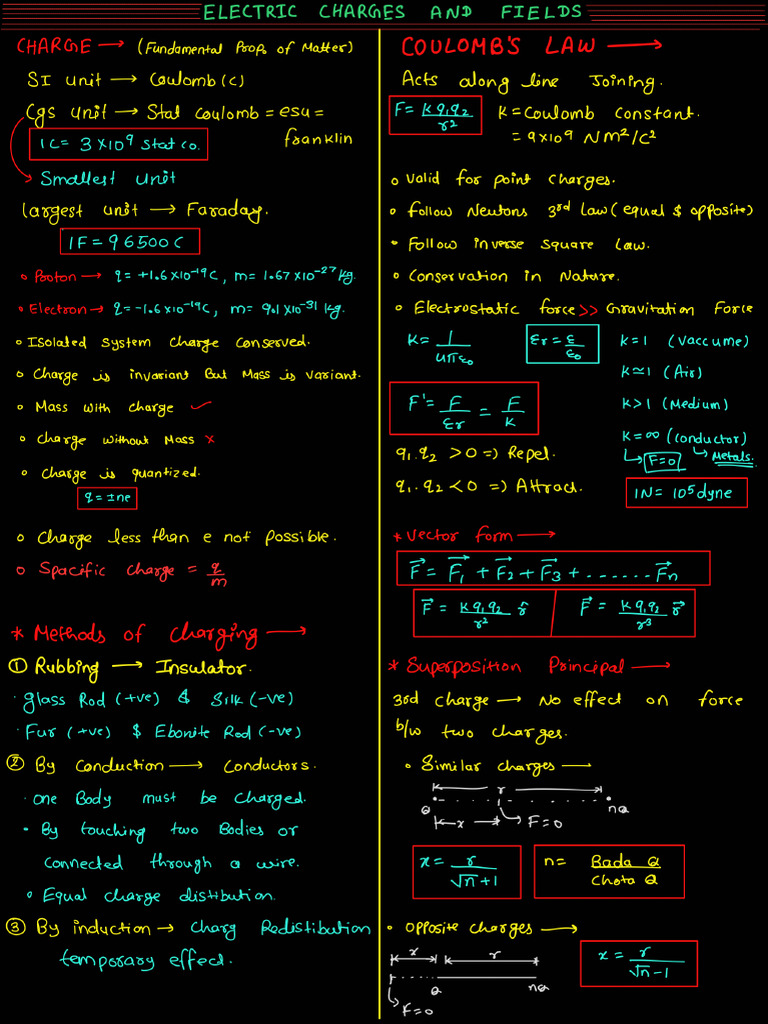 ELECTRIC CHARGES AND FIELDS
CHARGE → (Fundamental Prop. of Matter)
SI unit → Coulomb (C)
Cgs unit → Stat coulomb = esu = franklin
1C = 3×10⁹ stat co.
Smallest unit
largest unit → Faraday.
1F = 96500 C
• Proton → q = +1.6×10⁻¹⁹C, m = 1.67×10⁻²⁷ kg.
• Electron → q = -1.6×10⁻¹⁹C, m = 9.1×10⁻³¹ kg.
• Isolated system charge conserved.
• Charge is invariant but Mass is variant.
• Mass with charge ✓
• charge without Mass ×
• Charge is quantized.
q = ±ne
• Charge less than e not possible.
• Spacific charge = q/m
* Methods of charging →
① Rubbing → Insulator.
• glass Rod (+ve) & Silk (-ve)
• Fur (+ve) & Ebonite Rod (-ve)
② By Conduction → conductors.
• one Body must be charged.
• By touching two Bodies or
connected through a wire.
• Equal charge distibution.
③ By induction → charg Redistibution
temporary effect.
COULOMB'S LAW →
Acts along line Joining.
F = K q₁q₂/r²
K = Coulomb constant.
= 9×10⁹ Nm²/C²
• Valid for point charges.
• follow Newtons 3rd law (equal & opposite)
• Follow inverse square law.
• Conservation in Nature.
• Electrostatic force >> Gravitation Force
K = 1/4πε₀
εr = ε/ε₀
K = 1 (Vaccume)
K ≃ 1 (Air)
F' = F/εr = F/K
K > 1 (Medium)
K = ∞ (conductor)
F = 0
Metals.
q₁.q₂ > 0 => Repel.
q₁.q₂ < 0 => Attract.
1N = 10⁵ dyne
* Vector form →
F⃗ = F⃗₁ + F⃗₂ + F⃗₃ + ....... F⃗n
F⃗ = K q₁q₂/r² r̂
F⃗ = K q₁q₂/r³ r⃗
* Superposition Principal →
3rd charge → No effect on force
b/w two charges.
• Similar charges →
r
Q
nQ
x
F = 0
x = r/√n+1
n = Bada Q/Chota Q
• opposite charges →
x
r
Q
nQ
F = 0
x = r/√n-1